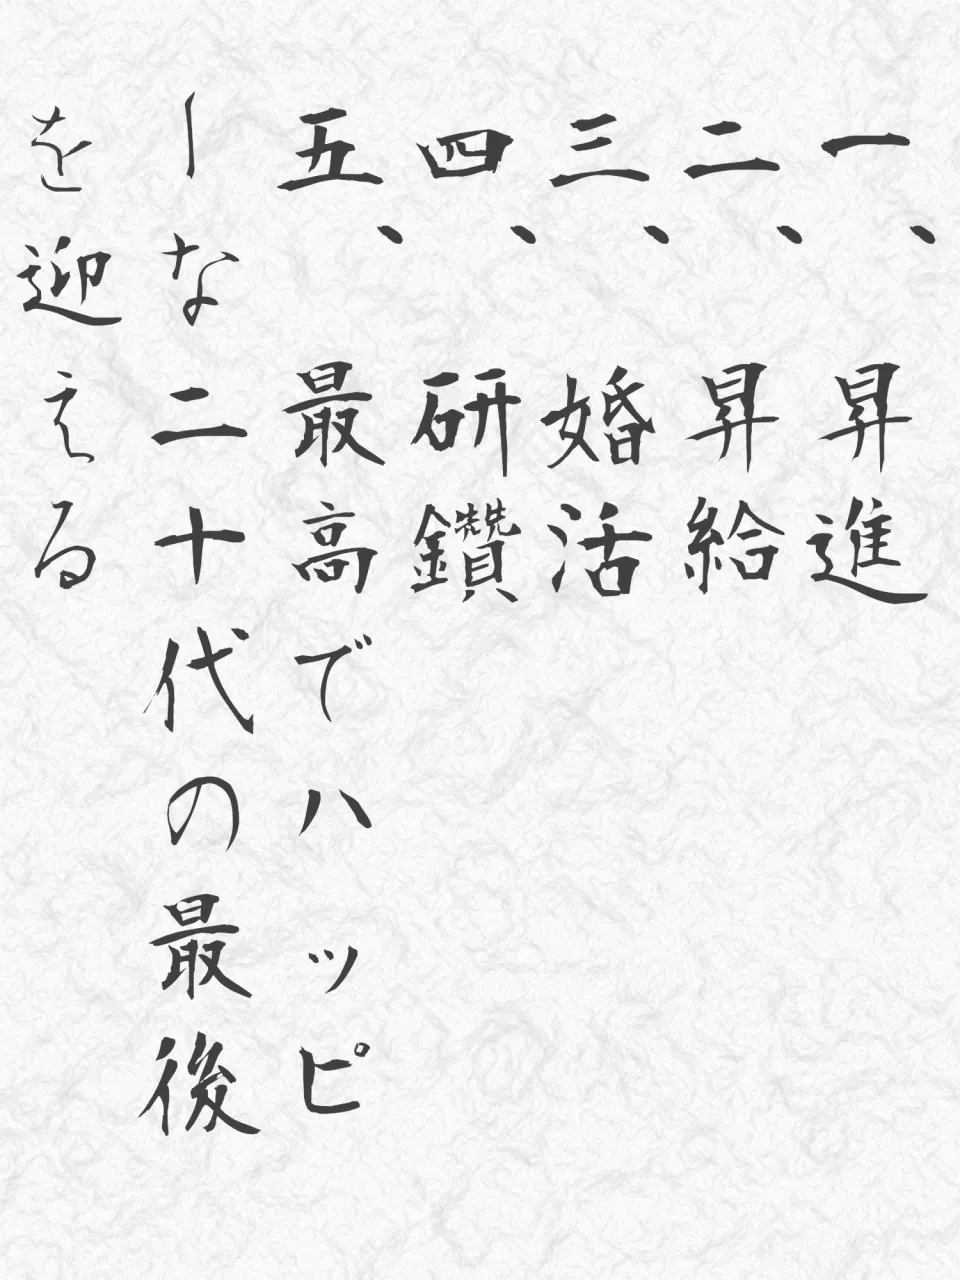 一、昇進
二、昇給
三、婚活
四、研鑽
五、最高でハッピ
ーな二十代の最後
を迎える